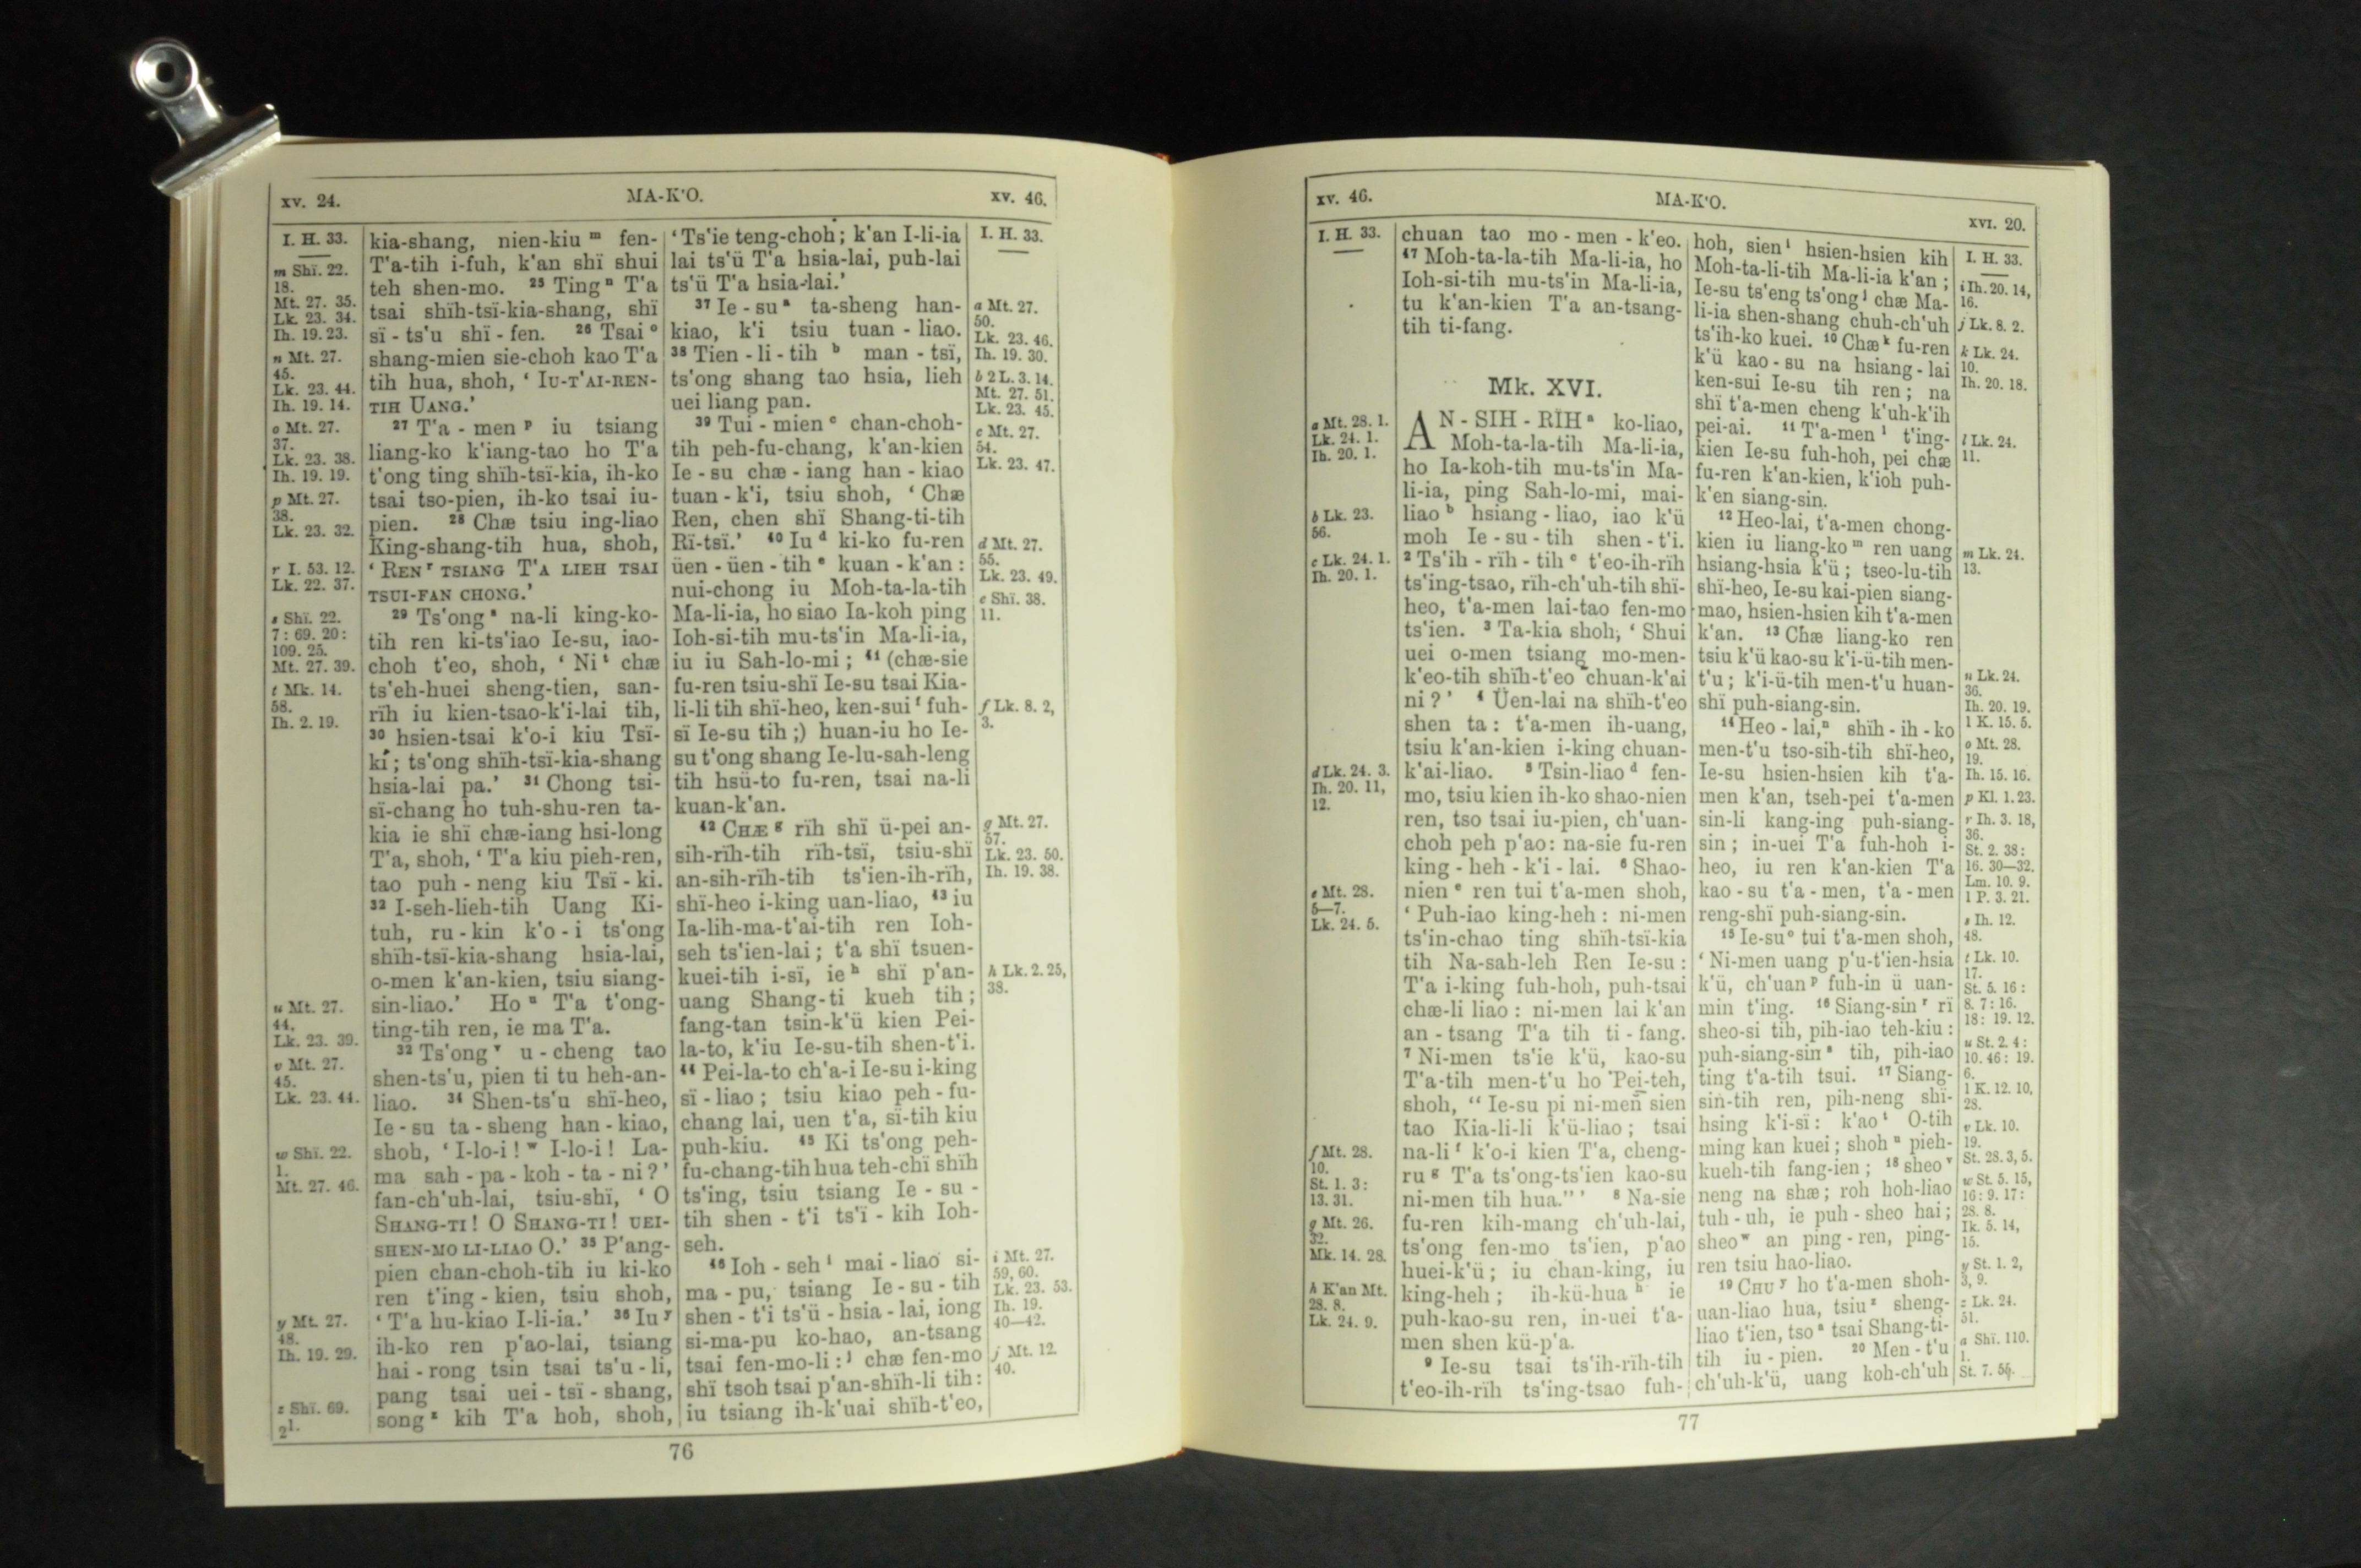 xv. 24. MA-K'O. xv. 46.
I. H. 33.
m Shï. 22.
18.
Mt. 27. 35.
Lk. 23. 34.
Ih. 19. 23.
n Mt. 27.
45.
Lk. 23. 44.
Ih. 19. 14.
o Mt. 27.
37.
Lk. 23. 38.
Ih. 19. 19.
p Mt. 27.
38.
Lk. 23. 32.
r I. 53. 12.
Lk. 22. 37.
s Shï. 22.
7: 69. 20:
109. 25.
Mt. 27. 39.
t Mk. 14.
58.
Ih. 2. 19.
u Mt. 27.
44.
Lk. 23. 39.
v Mt. 27.
45.
Lk. 23. 44.
w Shï. 22.
1.
Mt. 27. 46.
y Mt. 27.
48.
Ih. 19. 29.
z Shï. 69.
21.
kia-shang, nien-kiu ᵐ fen-
T'a-tih i-fuh, k'an shï shui
teh shen-mo. ²⁵ Ting ⁿ T'a
tsai shïh-tsï-kia-shang, shï
sï-ts'u shï-fen. ²⁶ Tsai ᵒ
shang-mien sie-choh kao T'a
tih hua, shoh, ‘ IU-T'AI-REN-
TIH UANG.’
²⁷ T'a-men ᵖ iu tsiang
liang-ko k'iang-tao ho T'a
t'ong ting shïh-tsï-kia, ih-ko
tsai tso-pien, ih-ko tsai iu-
pien. ²⁸ Chæ tsiu ing-liao
King-shang-tih hua, shoh,
‘ REN ʳ TSIANG T'A LIEH TSAI
TSUI-FAN CHONG.’
²⁹ Ts'ong ˢ na-li king-ko-
tih ren ki-ts'iao Ie-su, iao-
choh t'eo, shoh, ‘ Ni ᵗ chæ
ts'eh-huei sheng-tien, san-
rïh iu kien-tsao-k'i-lai tih,
³⁰ hsien-tsai k'o-i kiu Tsï-
ki; ts'ong shïh-tsï-kia-shang
hsia-lai pa.’ ³¹ Chong tsi-
sï-chang ho tuh-shu-ren ta-
kia ie shï chæ-iang hsi-long
T'a, shoh, ‘ T'a kiu pieh-ren,
tao puh-neng kiu Tsï-ki.
³² I-seh-lieh-tih Uang Ki-
tuh, ru-kin k'o-i ts'ong
shïh-tsï-kia-shang hsia-lai,
o-men k'an-kien, tsiu siang-
sin-liao.’ Ho ᵘ T'a t'ong-
ting-tih ren, ie ma T'a.
³² Ts'ong ᵛ u-cheng tao
shen-ts'u, pien ti tu heh-an-
liao. ³⁴ Shen-ts'u shï-heo,
Ie-su ta-sheng han-kiao,
shoh, ‘ I-lo-i! ʷ I-lo-i! La-
ma sah-pa-koh-ta-ni?’
fan-ch'uh-lai, tsiu-shï, ‘ O
SHANG-TI! O SHANG-TI! UEI-
SHEN-MO LI-LIAO O.’ ³⁵ P'ang-
pien chan-choh-tih iu ki-ko
ren t'ing-kien, tsiu shoh,
‘ T'a hu-kiao I-li-ia.’ ³⁶ Iu ʸ
ih-ko ren p'ao-lai, tsiang
hai-rong tsin tsai ts'u-li,
pang tsai uei-tsï-shang,
song ᶻ kih T'a hoh, shoh,
‘ Ts'ie teng-choh; k'an I-li-ia
lai ts'ü T'a hsia-lai, puh-lai
ts'ü T'a hsia-lai.’
³⁷ Ie-su ᵃ ta-sheng han-
kiao, k'i tsiu tuan-liao.
³⁸ Tien-li-tih ᵇ man-tsï,
ts'ong shang tao hsia, lieh
uei liang pan.
³⁹ Tui-mien ᶜ chan-choh-
tih peh-fu-chang, k'an-kien
Ie-su chæ-iang han-kiao
tuan-k'i, tsiu shoh, ‘ Chæ
Ren, chen shï Shang-ti-tih
Rï-tsï.’ ⁴⁰ Iu ᵈ ki-ko fu-ren
üen-üen-tih ᵉ kuan-k'an:
nui-chong iu Moh-ta-la-tih
Ma-li-ia, ho siao Ia-koh ping
Ioh-si-tih mu-ts'in Ma-li-ia,
iu iu Sah-lo-mi; ⁴¹ (chæ-sie
fu-ren tsiu-shï Ie-su tsai Kia-
li-li tih shï-heo, ken-sui ᶠ fuh-
sï Ie-su tih;) huan-iu ho Ie-
su t'ong shang Ie-lu-sah-leng
tih hsü-to fu-ren, tsai na-li
kuan-k'an.
⁴² CHÆ ᵍ rïh shï ü-pei an-
sih-rïh-tih rïh-tsï, tsiu-shï
an-sih-rïh-tih ts'ien-ih-rïh,
shï-heo i-king uan-liao, ⁴³ iu
Ia-lih-ma-t'ai-tih ren Ioh-
seh ts'ien-lai; t'a shï tsuen-
kuei-tih i-sï, ie ʰ shï p'an-
uang Shang-ti kueh tih;
fang-tan tsin-k'ü kien Pei-
la-to, k'iu Ie-su-tih shen-t'i.
⁴⁴ Pei-la-to ch'a-i Ie-su i-king
sï-liao; tsiu kiao peh-fu-
chang lai, uen t'a, sï-tih kiu
puh-kiu. ⁴⁵ Ki ts'ong peh-
fu-chang-tih hua teh-chï shïh
ts'ing, tsiu tsiang Ie-su-
tih shen-t'i ts'ï-kih Ioh-
seh.
⁴⁶ Ioh-seh ⁱ mai-liao si-
ma-pu, tsiang Ie-su-tih
shen-t'i ts'ü-hsia-lai, iong
si-ma-pu ko-hao, an-tsang
tsai fen-mo-li: ʲ chæ fen-mo
shï tsoh tsai p'an-shïh-li tih:
iu tsiang ih-k'uai shïh-t'eo,
I. H. 33.
a Mt. 27.
50.
Lk. 23. 46.
Ih. 19. 30.
b 2 L. 3. 14.
Mt. 27. 51.
Lk. 23. 45.
c Mt. 27.
54.
Lk. 23. 47.
d Mt. 27.
55.
Lk. 23. 49.
e Shï. 38.
11.
f Lk. 8. 2,
3.
g Mt. 27.
57.
Lk. 23. 50.
Ih. 19. 38.
h Lk. 2. 25,
38.
i Mt. 27.
59, 60.
Lk. 23. 53.
Ih. 19.
40—42.
j Mt. 12.
40.
76
xv. 46. MA-K'O. XVI. 20.
I. H. 33.
a Mt. 28. 1.
Lk. 24. 1.
Ih. 20. 1.
b Lk. 23.
56.
c Lk. 24. 1.
Ih. 20. 1.
d Lk. 24. 3.
Ih. 20. 11,
12.
e Mt. 28.
5—7.
Lk. 24. 5.
f Mt. 28.
10.
St. 1. 3:
13. 31.
g Mt. 26.
32.
Mk. 14. 28.
h K'an Mt.
28. 8.
Lk. 24. 9.
chuan tao mo-men-k'eo.
⁴⁷ Moh-ta-la-tih Ma-li-ia, ho
Ioh-si-tih mu-ts'in Ma-li-ia,
tu k'an-kien T'a an-tsang-
tih ti-fang.
Mk. XVI.
AN-SIH-RÏH ᵃ ko-liao,
Moh-ta-la-tih Ma-li-ia,
ho Ia-koh-tih mu-ts'in Ma-
li-ia, ping Sah-lo-mi, mai-
liao ᵇ hsiang-liao, iao k'ü
moh Ie-su-tih shen-t'i.
² Ts'ih-rïh-tih ᶜ t'eo-ih-rïh
ts'ing-tsao, rïh-ch'uh-tih shï-
heo, t'a-men lai-tao fen-mo
ts'ien. ³ Ta-kia shoh, ‘ Shui
uei o-men tsiang mo-men-
k'eo-tih shïh-t'eo chuan-k'ai
ni?’ ⁴ Üen-lai na shïh-t'eo
shen ta: t'a-men ih-uang,
tsiu k'an-kien i-king chuan-
k'ai-liao. ⁵ Tsin-liao ᵈ fen-
mo, tsiu kien ih-ko shao-nien
ren, tso tsai iu-pien, ch'uan-
choh peh p'ao: na-sie fu-ren
king-heh-k'i-lai. ⁶ Shao-
nien ᵉ ren tui t'a-men shoh,
‘ Puh-iao king-heh: ni-men
ts'in-chao ting shïh-tsï-kia
tih Na-sah-leh Ren Ie-su:
T'a i-king fuh-hoh, puh-tsai
chæ-li liao: ni-men lai k'an
an-tsang T'a tih ti-fang.
⁷ Ni-men ts'ie k'ü, kao-su
T'a-tih men-t'u ho Pei-teh,
shoh, “ Ie-su pi ni-men sien
tao Kia-li-li k'ü-liao; tsai
na-li ᶠ k'o-i kien T'a, cheng-
ru ᵍ T'a ts'ong-ts'ien kao-su
ni-men tih hua.” ’ ⁸ Na-sie
fu-ren kih-mang ch'uh-lai,
ts'ong fen-mo ts'ien, p'ao
huei-k'ü; iu chan-king, iu
king-heh; ih-kü-hua ʰ ie
puh-kao-su ren, in-uei t'a-
men shen kü-p'a.
⁹ Ie-su tsai ts'ih-rïh-tih
t'eo-ih-rïh ts'ing-tsao fuh-
hoh, sien ⁱ hsien-hsien kih
Moh-ta-li-tih Ma-li-ia k'an;
Ie-su ts'eng ts'ong ʲ chæ Ma-
li-ia shen-shang chuh-ch'uh
ts'ih-ko kuei. ¹⁰ Chæ ᵏ fu-ren
k'ü kao-su na hsiang-lai
ken-sui Ie-su tih ren; na
shï t'a-men cheng k'uh-k'ih
pei-ai. ¹¹ T'a-men ˡ t'ing-
kien Ie-su fuh-hoh, pei chæ
fu-ren k'an-kien, k'ioh puh-
k'en siang-sin.
¹² Heo-lai, t'a-men chong-
kien iu liang-ko ᵐ ren uang
hsiang-hsia k'ü; tseo-lu-tih
shï-heo, Ie-su kai-pien siang-
mao, hsien-hsien kih t'a-men
k'an. ¹³ Chæ liang-ko ren
tsiu k'ü kao-su k'i-ü-tih men-
t'u; k'i-ü-tih men-t'u huan-
shï puh-siang-sin.
¹⁴ Heo-lai, ⁿ shïh-ih-ko
men-t'u tso-sih-tih shï-heo,
Ie-su hsien-hsien kih t'a-
men k'an, tseh-pei t'a-men
sin-li kang-ing puh-siang-
sin; in-uei T'a fuh-hoh i-
heo, iu ren k'an-kien T'a
kao-su t'a-men, t'a-men
reng-shï puh-siang-sin.
¹⁵ Ie-su ᵒ tui t'a-men shoh,
‘ Ni-men uang p'u-t'ien-hsia
k'ü, ch'uan ᵖ fuh-in ü uan-
min t'ing. ¹⁶ Siang-sin ʳ rï
sheo-si tih, pih-iao teh-kiu:
puh-siang-sin ˢ tih, pih-iao
ting t'a-tih tsui. ¹⁷ Siang-
sin-tih ren, pih-neng shï-
hsing k'i-sï: k'ao ᵗ O-tih
ming kan kuei; shoh ᵘ pieh-
kueh-tih fang-ien; ¹⁸ sheo ᵛ
neng na shæ; roh hoh-liao
tuh-uh, ie puh-sheo hai;
sheo ʷ an ping-ren, ping-
ren tsiu hao-liao.
¹⁹ CHU ʸ ho t'a-men shoh-
uan-liao hua, tsiu ᶻ sheng-
liao t'ien, tso ᵃ tsai Shang-ti-
tih iu-pien. ²⁰ Men-t'u
ch'uh-k'ü, uang koh-ch'uh
I. H. 33.
i Ih. 20. 14,
16.
j Lk. 8. 2.
k Lk. 24.
10.
Ih. 20. 18.
l Lk. 24.
11.
m Lk. 24.
13.
n Lk. 24.
36.
Ih. 20. 19.
1 K. 15. 5.
o Mt. 28.
19.
Ih. 15. 16.
p Kl. 1. 23.
r Ih. 3. 18,
36.
St. 2. 38:
16. 30—32.
Lm. 10. 9.
1 P. 3. 21.
s Ih. 12.
48.
t Lk. 10.
17.
St. 5. 16:
8. 7: 16.
18: 19. 12.
u St. 2. 4:
10. 46: 19.
6.
1 K. 12. 10,
28.
v Lk. 10.
19.
St. 28. 3, 5.
w St. 5. 15,
16: 9. 17:
28. 8.
Ik. 5. 14,
15.
y St. 1. 2,
3, 9.
z Lk. 24.
51.
a Shï. 110.
1.
St. 7. 56.
77